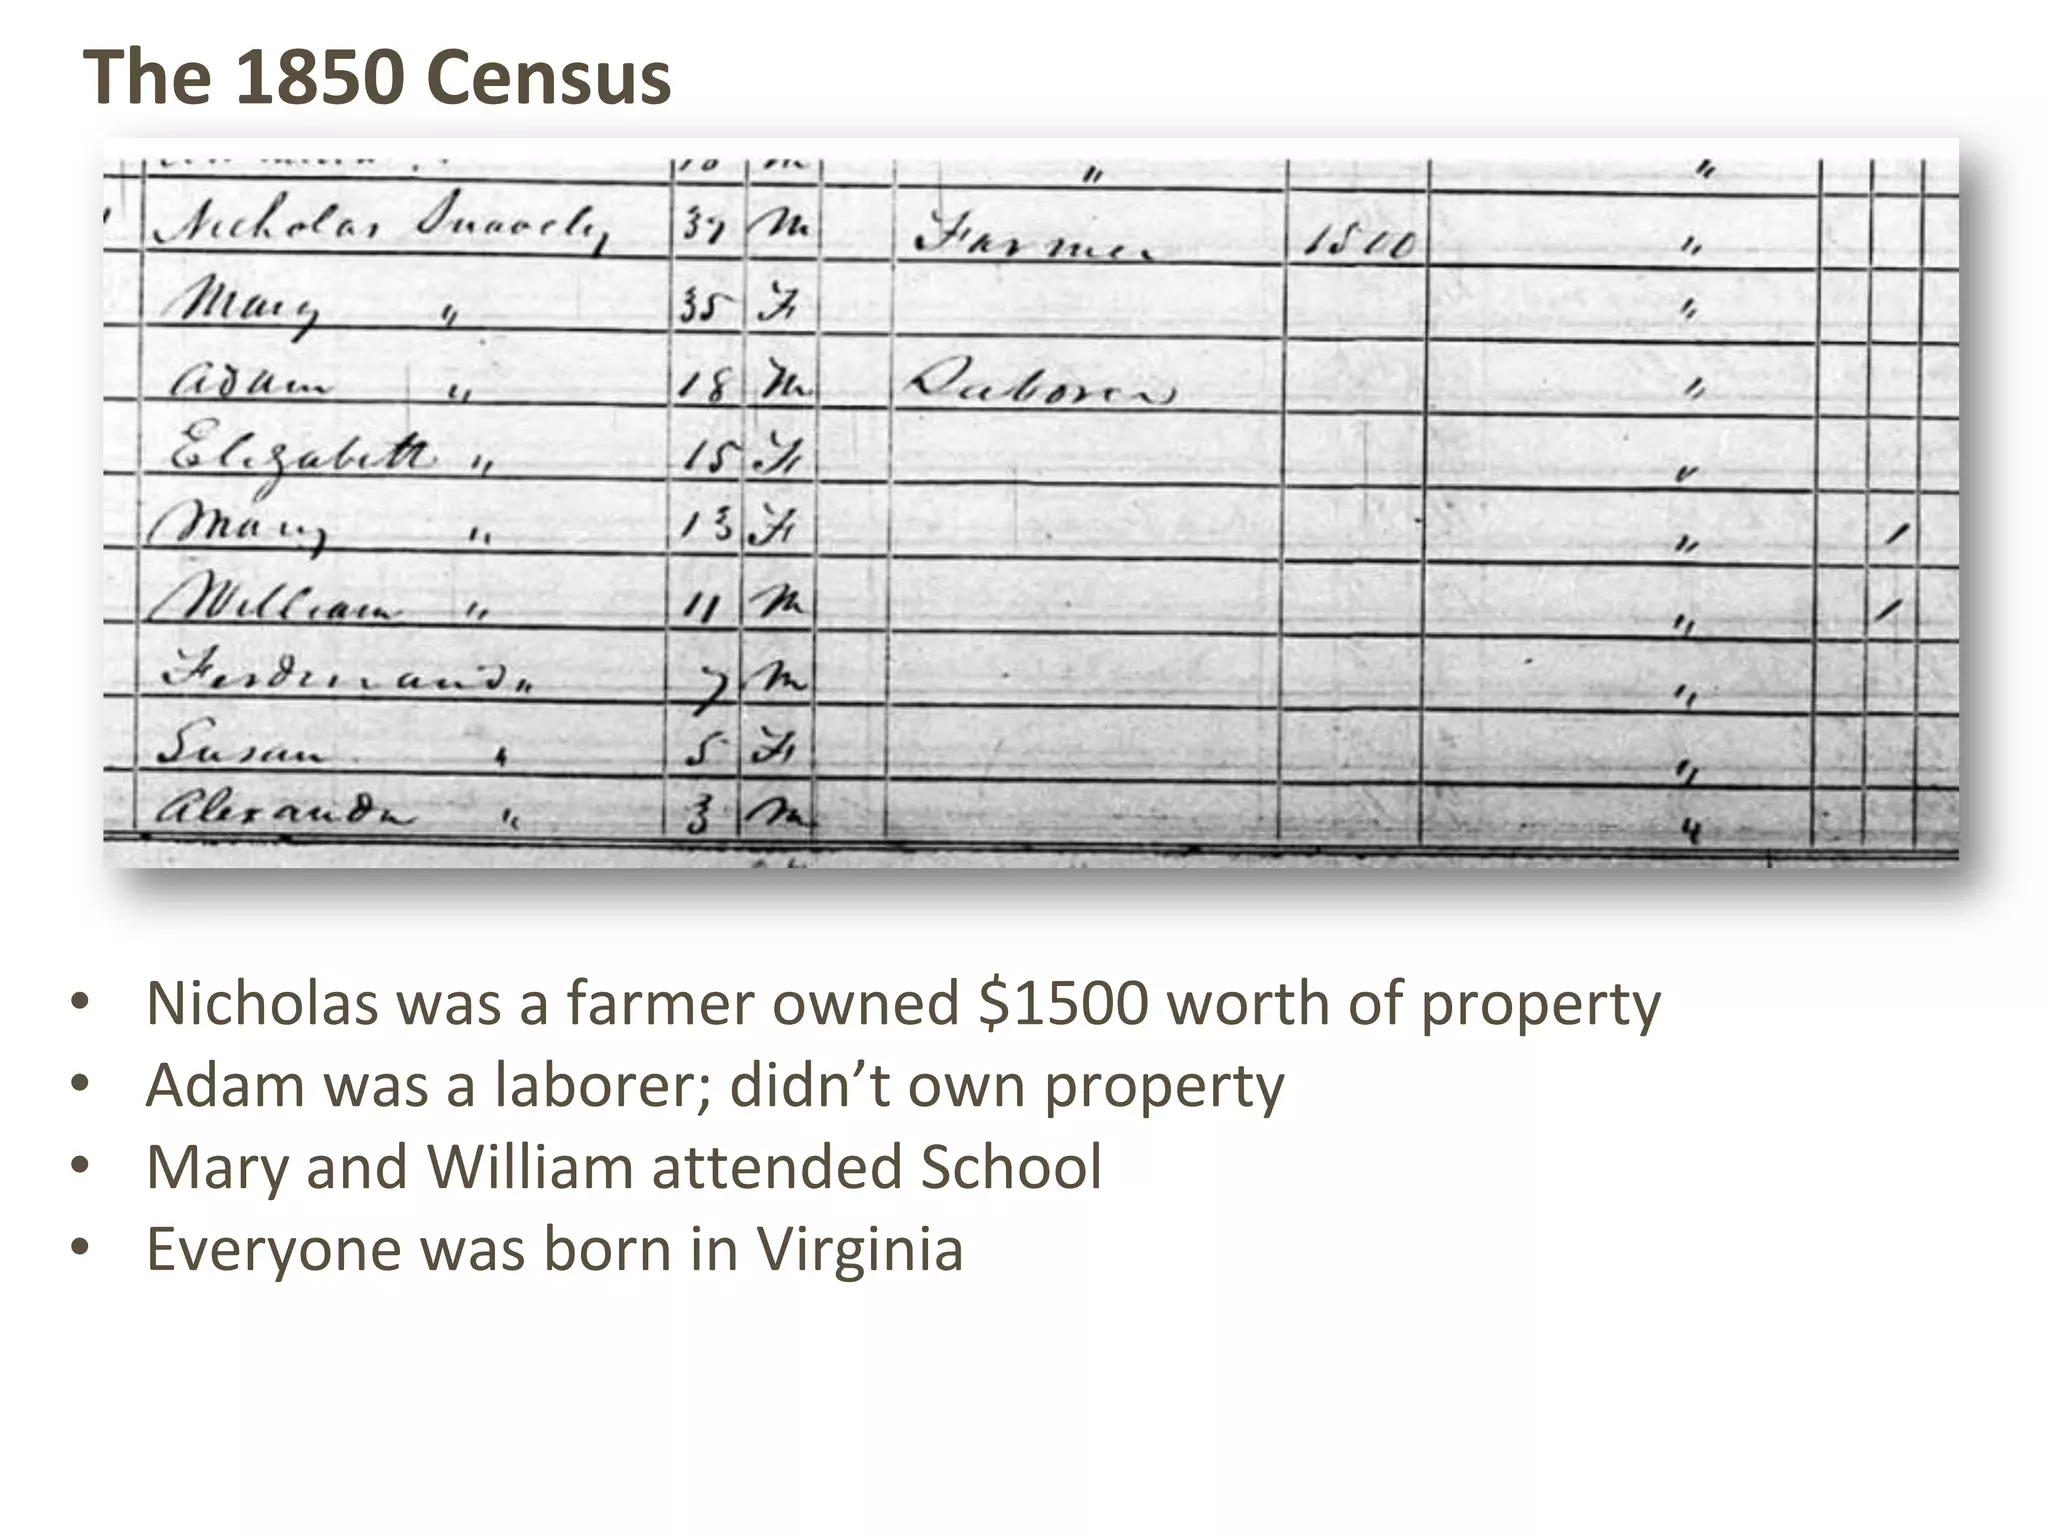 The 1850 Census
18 M "
1 Nicholas Snavely 37 M Farmer 1500 "
Mary " 35 F "
Adam " 18 M Laborer "
Elizabeth " 15 F "
Mary " 13 F " /
William " 11 M " /
Ferdinand " 7 M "
Susan " 5 F "
Alexander " 3 M "
• Nicholas was a farmer owned $1500 worth of property
• Adam was a laborer; didn’t own property
• Mary and William attended School
• Everyone was born in Virginia